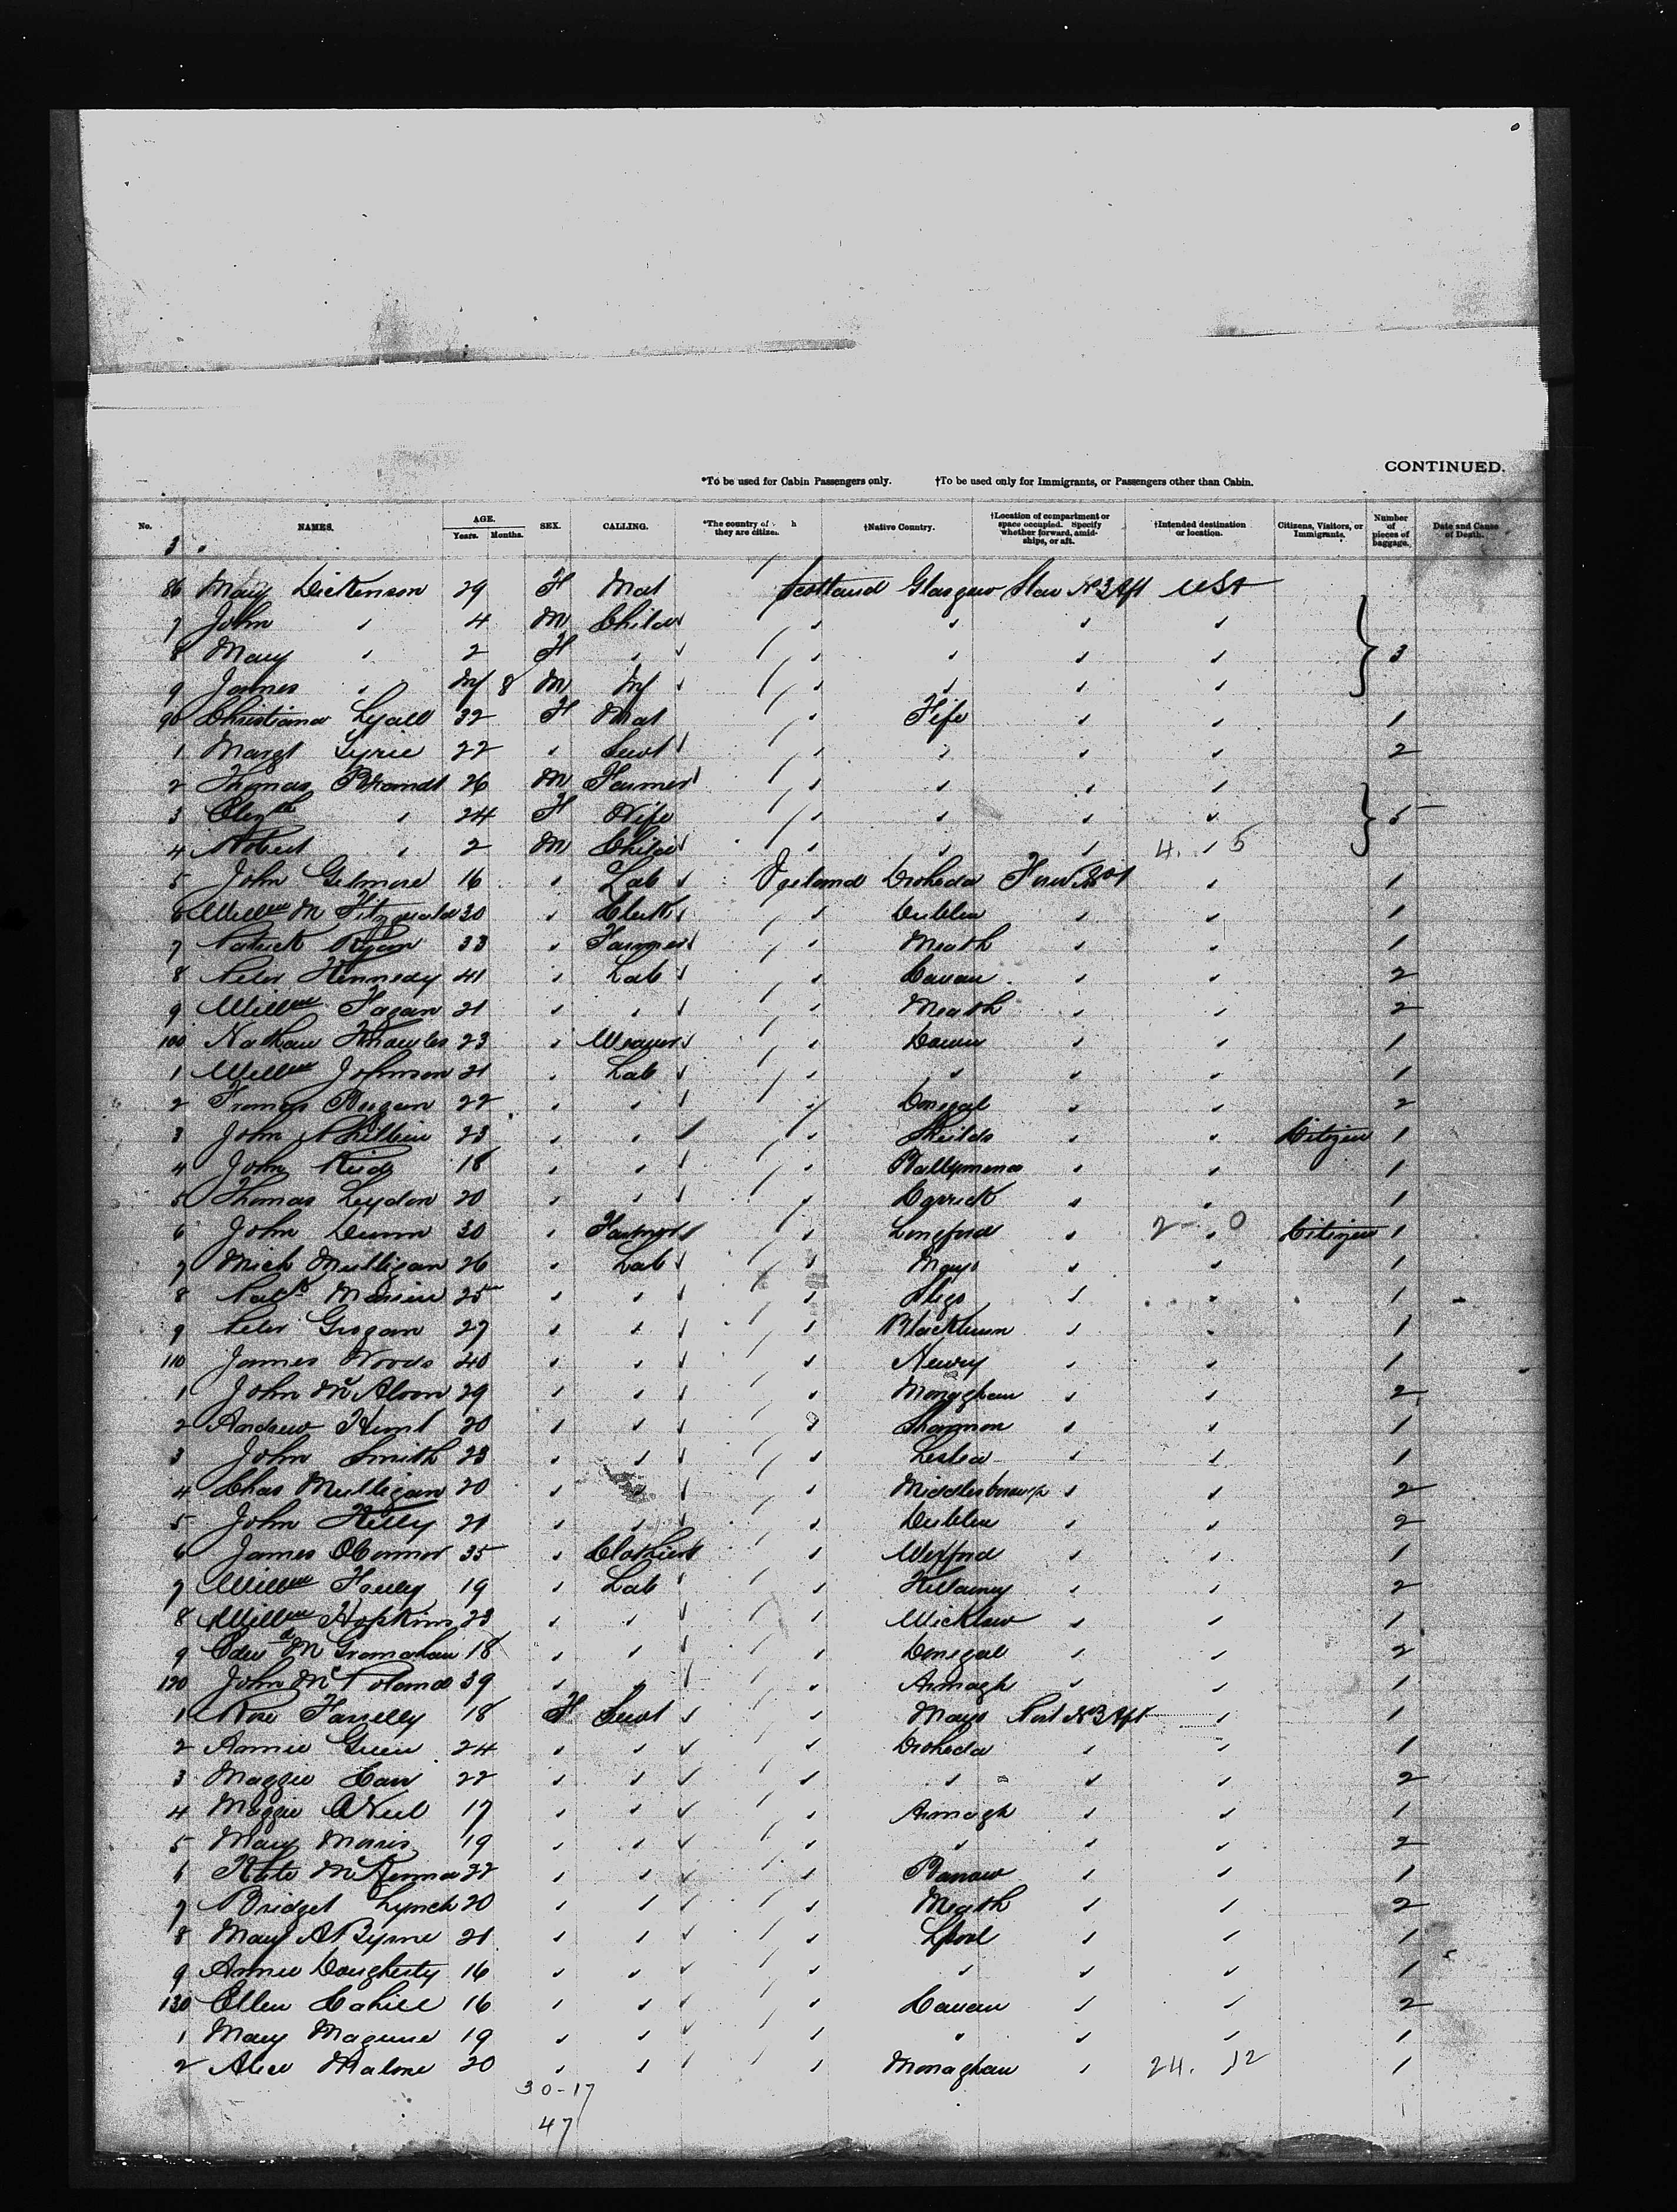 CONTINUED.
*To be used for Cabin Passengers only. †To be used only for Immigrants, or Passengers other than Cabin.
No. NAMES. AGE. Years. Months. SEX. CALLING. *The country of h they are citizen. †Native Country. †Location of compartment or space occupied. Specify whether forward, amidships, or aft. †Intended destination or location. Citizens, Visitors, or Immigrants. Number of pieces of baggage. Date and Cause of Death.
86 Mary Dickenson 29 F Mat Scotland Glasgow No 3 Aft USA
7 John " 4 M Child " " " "
8 Mary " 2 F " " " " " 3
9 James " Inf 8 M Inf " " " "
90 Christiana Lyall 32 F Mat " Fife " " 1
1 Margt 22 " Servt " " " " 2
2 Thomas 26 M Farmer " " " "
3 Elizth " 24 F Wife " " " " 5
4 Robert " 2 M Child " " " 4. " 5
5 John Gilmore 16 " Lab Ireland Drogheda Forwd No 1 " 1
6 Willm M Fitzgerald 30 " Clerk " Dublin " " 1
7 Patrick Ryan 33 " Farmer " Meath " " 1
8 Peter Kennedy 41 " Lab " Cavan " " 2
9 Willm Fagan 21 " " " Meath " " 2
100 Nathan Knowles 23 " Weaver " Down " " 1
1 Willm Johnson 21 " Lab " " " " 1
2 22 " " " Donegal " " 2
3 John Philbin 23 " " " Sheilds " " Citizen 1
4 John Reid 18 " " " Ballymena " " 1
5 Thomas Leydon 20 " " " Carrick " " 1
6 John Dunn 30 " Farmer " Longford " 2 - " 0 Citizen 1
7 Mich Mulligan 26 " Lab " Mayo " " 1
8 Patk 25 " " " Sligo " " 1
9 Peter Grogan 27 " " " Blackburn " " 1
110 James Woods 40 " " " Newry " " 1
1 John McAloon 29 " " " Monaghan " " 2
2 Andrew Hunt 20 " " " Shannon " " 1
3 John Smith 23 " " " " " 1
4 Chas Mulligan 20 " " Middlesborough " " 2
5 John Kelly 21 " " " Dublin " " 2
6 James OConnor 35 " Clothier " Wexford " " 1
7 Willm 19 " Lab " Killarney " " 2
8 Willm Hopkins 23 " " " Wicklow " " 1
9 Edwd 18 " " " Donegal " " 2
120 John McPoland 39 " " " Armagh " " 1
1 Rose Farrelly 18 F Servt " Mayo Port No 3 Aft " 1
2 Annie Green 24 " " " Drogheda " " 1
3 Maggie 22 " " " " " " 2
4 Maggie ONeil 17 " " " Armagh " " 1
5 Mary Morris 19 " " " " " " 2
6 Kate McKenna 22 " " " " " 1
7 Bridget Lynch 20 " " " Meath " " 2
8 Mary A Byrne 21 " " " Lpool " " 1
9 Annie Dougherty 16 " " " " " " 1
130 Ellen Cahill 16 " " " Cavan " " 2
1 Mary Maguire 19 " " " " " " 1
2 Alice Malone 20 " " " Monaghan " 24. 12 1
30-17
47